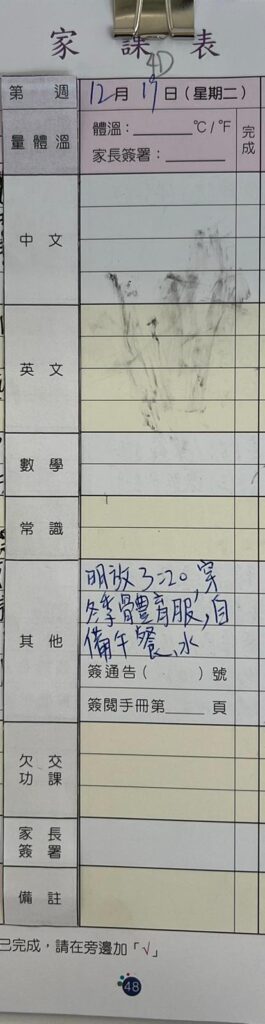 家課表
4D
第 週 12月 17日(星期二)
量體溫 體溫：______°C/°F 完成
家長簽署：______
中文
英文
數學
常識
其他
明放3:20,穿
冬季體育服,自
備午餐、水
簽通告( )號
簽閱手冊第____頁
欠交功課
家長簽署
備註
已完成，請在旁邊加「√」
48